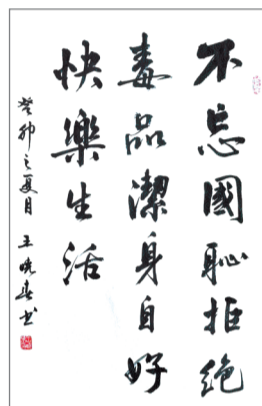 不忘國恥拒絕
毒品潔身自好
快樂生活
癸卯之夏月 王曉春书